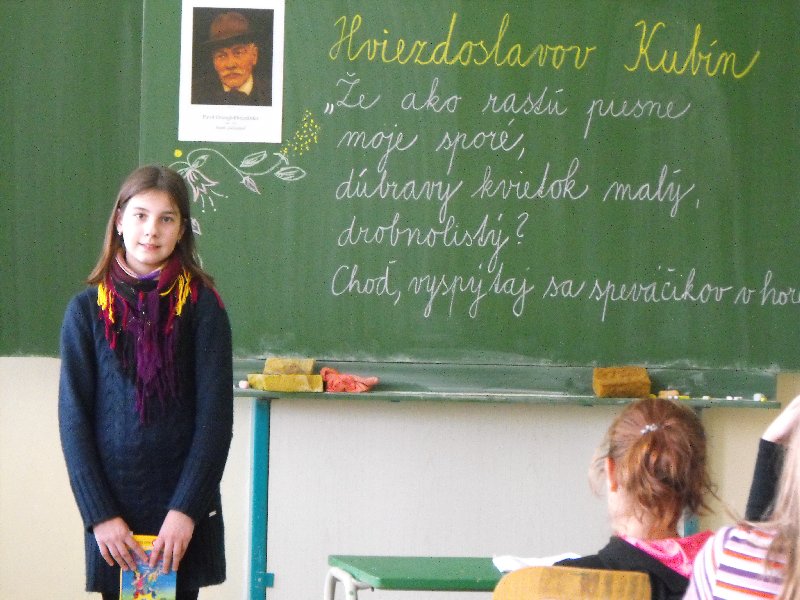 Hviezdoslavov Kubín
„Že ako rastú piesne
moje sporé,
dúbravy kvietok malý,
drobnolistý?
Choď, vyspýtaj sa speváčikov v hore